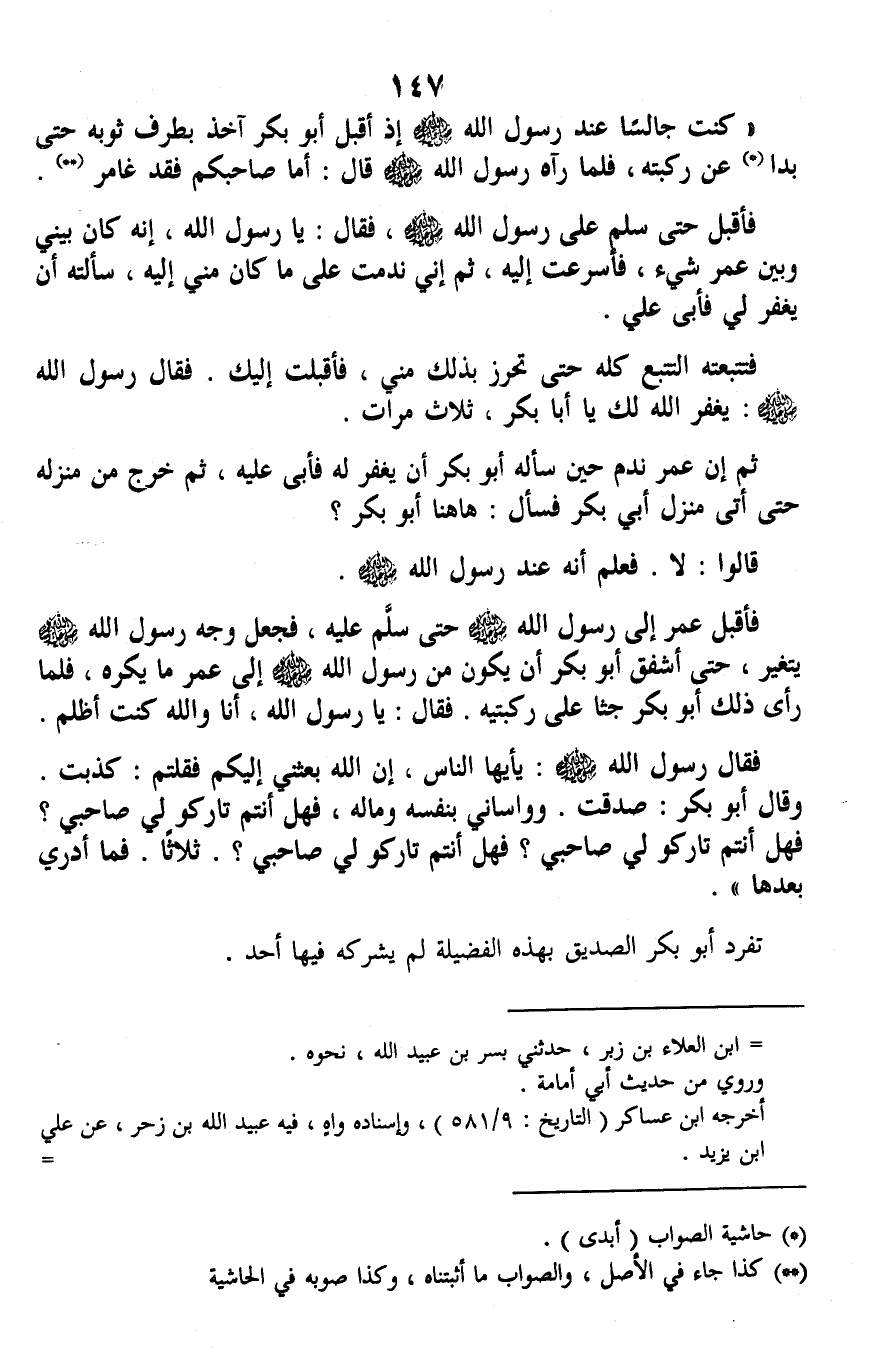 ١٤٧
« كنت جالسًا عند رسول الله ﷺ إذ أقبل أبو بكر آخذ بطرف ثوبه حتى
بدا (*) عن ركبته ، فلما رآه رسول الله ﷺ قال : أما صاحبكم فقد غامر (**) .
فأقبل حتى سلم على رسول الله ﷺ ، فقال : يا رسول الله ، إنه كان بيني
وبين عمر شيء ، فأسرعت إليه ، ثم إني ندمت على ما كان مني إليه ، سألته أن
يغفر لي فأبى علي .
فتتبعته التتبع كله حتى تحرز بذلك مني ، فأقبلت إليك . فقال رسول الله
ﷺ : يغفر الله لك يا أبا بكر ، ثلاث مرات .
ثم إن عمر ندم حين سأله أبو بكر أن يغفر له فأبى عليه ، ثم خرج من منزله
حتى أتى منزل أبي بكر فسأل : هاهنا أبو بكر ؟
قالوا : لا . فعلم أنه عند رسول الله ﷺ .
فأقبل عمر إلى رسول الله ﷺ حتى سلَّم عليه ، فجعل وجه رسول الله ﷺ
يتغير ، حتى أشفق أبو بكر أن يكون من رسول الله ﷺ إلى عمر ما يكره ، فلما
رأى ذلك أبو بكر جثا على ركبتيه . فقال : يا رسول الله ، أنا والله كنت أظلم .
فقال رسول الله ﷺ : يأيها الناس ، إن الله بعثني إليكم فقلتم : كذبت .
وقال أبو بكر : صدقت . وواساني بنفسه وماله ، فهل أنتم تاركو لي صاحبي ؟
فهل أنتم تاركو لي صاحبي ؟ فهل أنتم تاركو لي صاحبي ؟ . ثلاثًا . فما أدري
بعدها » .
تفرد أبو بكر الصديق بهذه الفضيلة لم يشركه فيها أحد .
= ابن العلاء بن زبر ، حدثني بسر بن عبيد الله ، نحوه .
وروي من حديث أبي أمامة .
أخرجه ابن عساكر ( التاريخ : ٥٨١/٩ ) ، وإسناده واهٍ ، فيه عبيد الله بن زحر ، عن علي
ابن يزيد . =
(*) حاشية الصواب ( أبدى ) .
(**) كذا جاء في الأصل ، والصواب ما أثبتناه ، وكذا صوبه في الحاشية